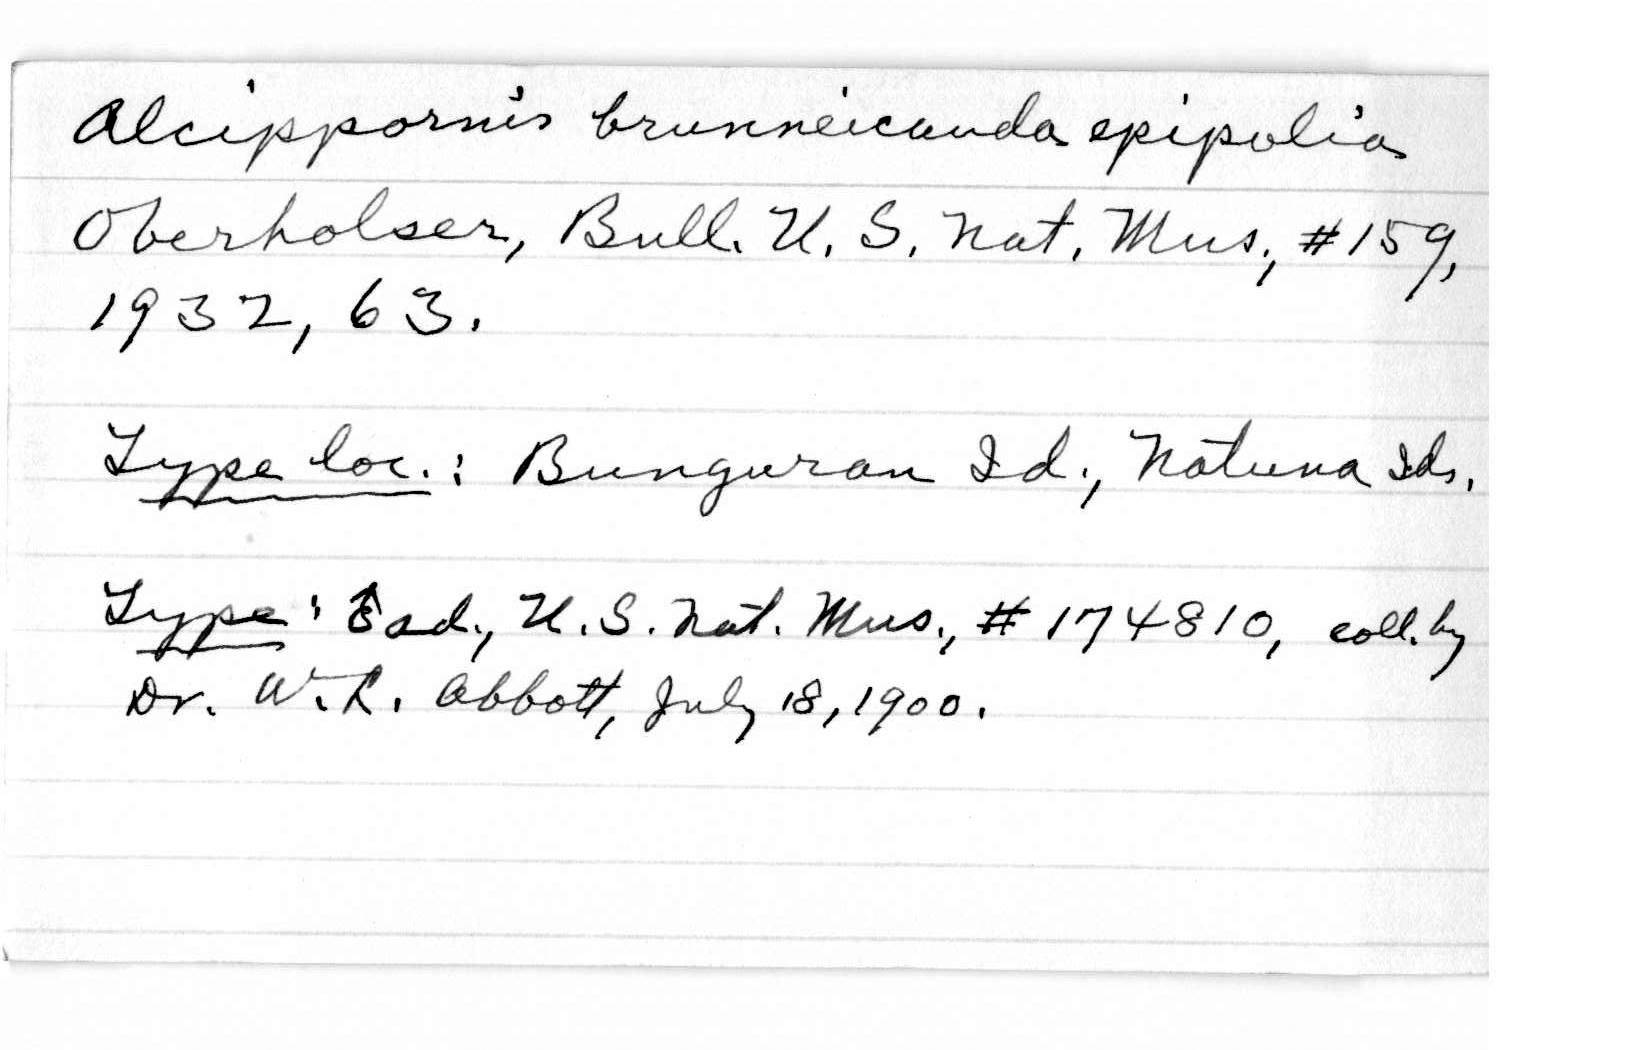 Alcippornis brunneicauda epipolia
Oberholser, Bull. U. S. Nat. Mus., #159,
1932, 63.
Type loc.: Bunguran Id., Natuna Ids.
Type: ad., U. S. Nat. Mus., # 174810, coll. by
Dr. W. L. Abbott, July 18, 1900.